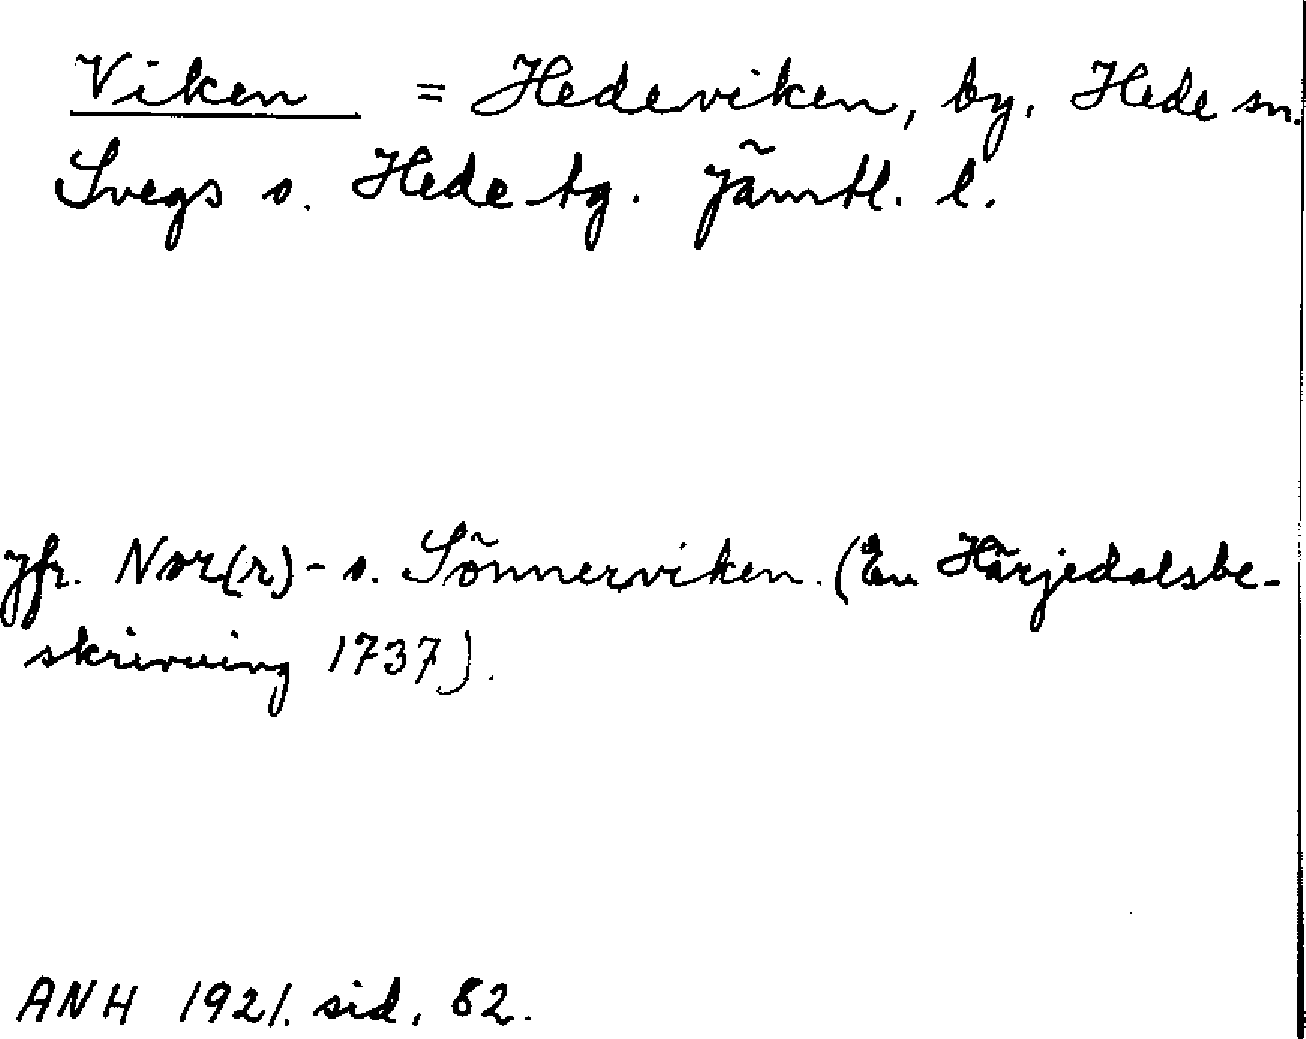 Viken = Hedeviken, by, Hede sn.
Svegs o. Hede tg. Jämtl. l.
Jfr. Nor(r)- o. Sönnerviken. (En Härjedalsbe-
skrivning 1737).
ANH 1921. sid. 82.